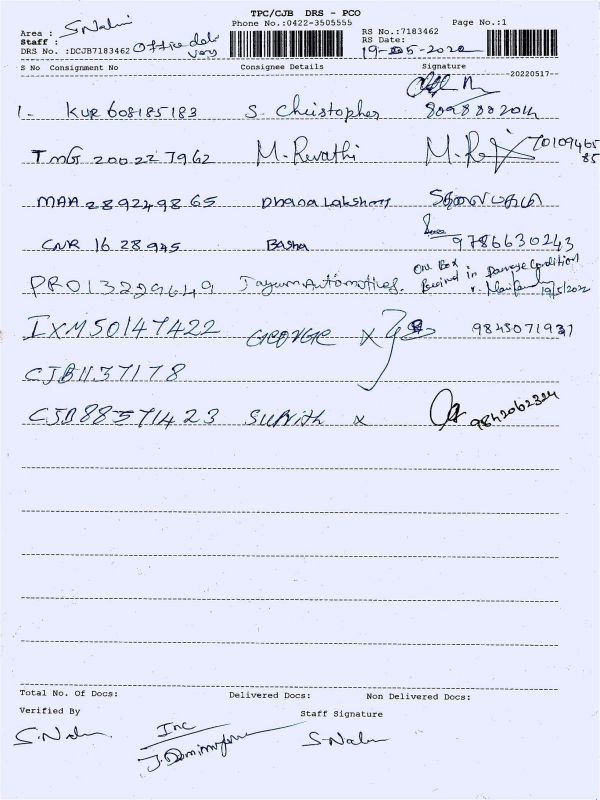 TPC/CJB DRS - PCO
Phone No.:0422-3505555
Page No.:1
Area : S. Nalini
Staff :
DRS No. :DCJB7183462 Office delivery
RS No.:7183462
RS Date:
19-05-2022
S No Consignment No Consignee Details Signature
--20220517--
1- KUR 608185183 S. Christopher
TMG 200227962 M. Revathi M. Re 70109465
85
MAA 289249865 Dhana Lakshmy தனலட்சுமி
CNR 1628945 Basha 9786630243
PRO13229649 Jayam Automotives One Box
Received in Damage Condition
19/5/2022
IXM50147422 GEORGE x 9843071931
CJB1137178
CJB88571423 Surjith x 9842062324
Total No. Of Docs: Delivered Docs: Non Delivered Docs:
Verified By Staff Signature
S. Nalini Inc S. Nalini